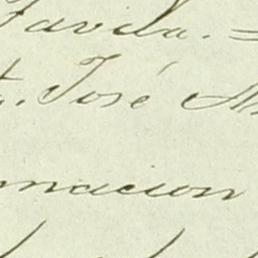 Favila. =
t. José M
macion